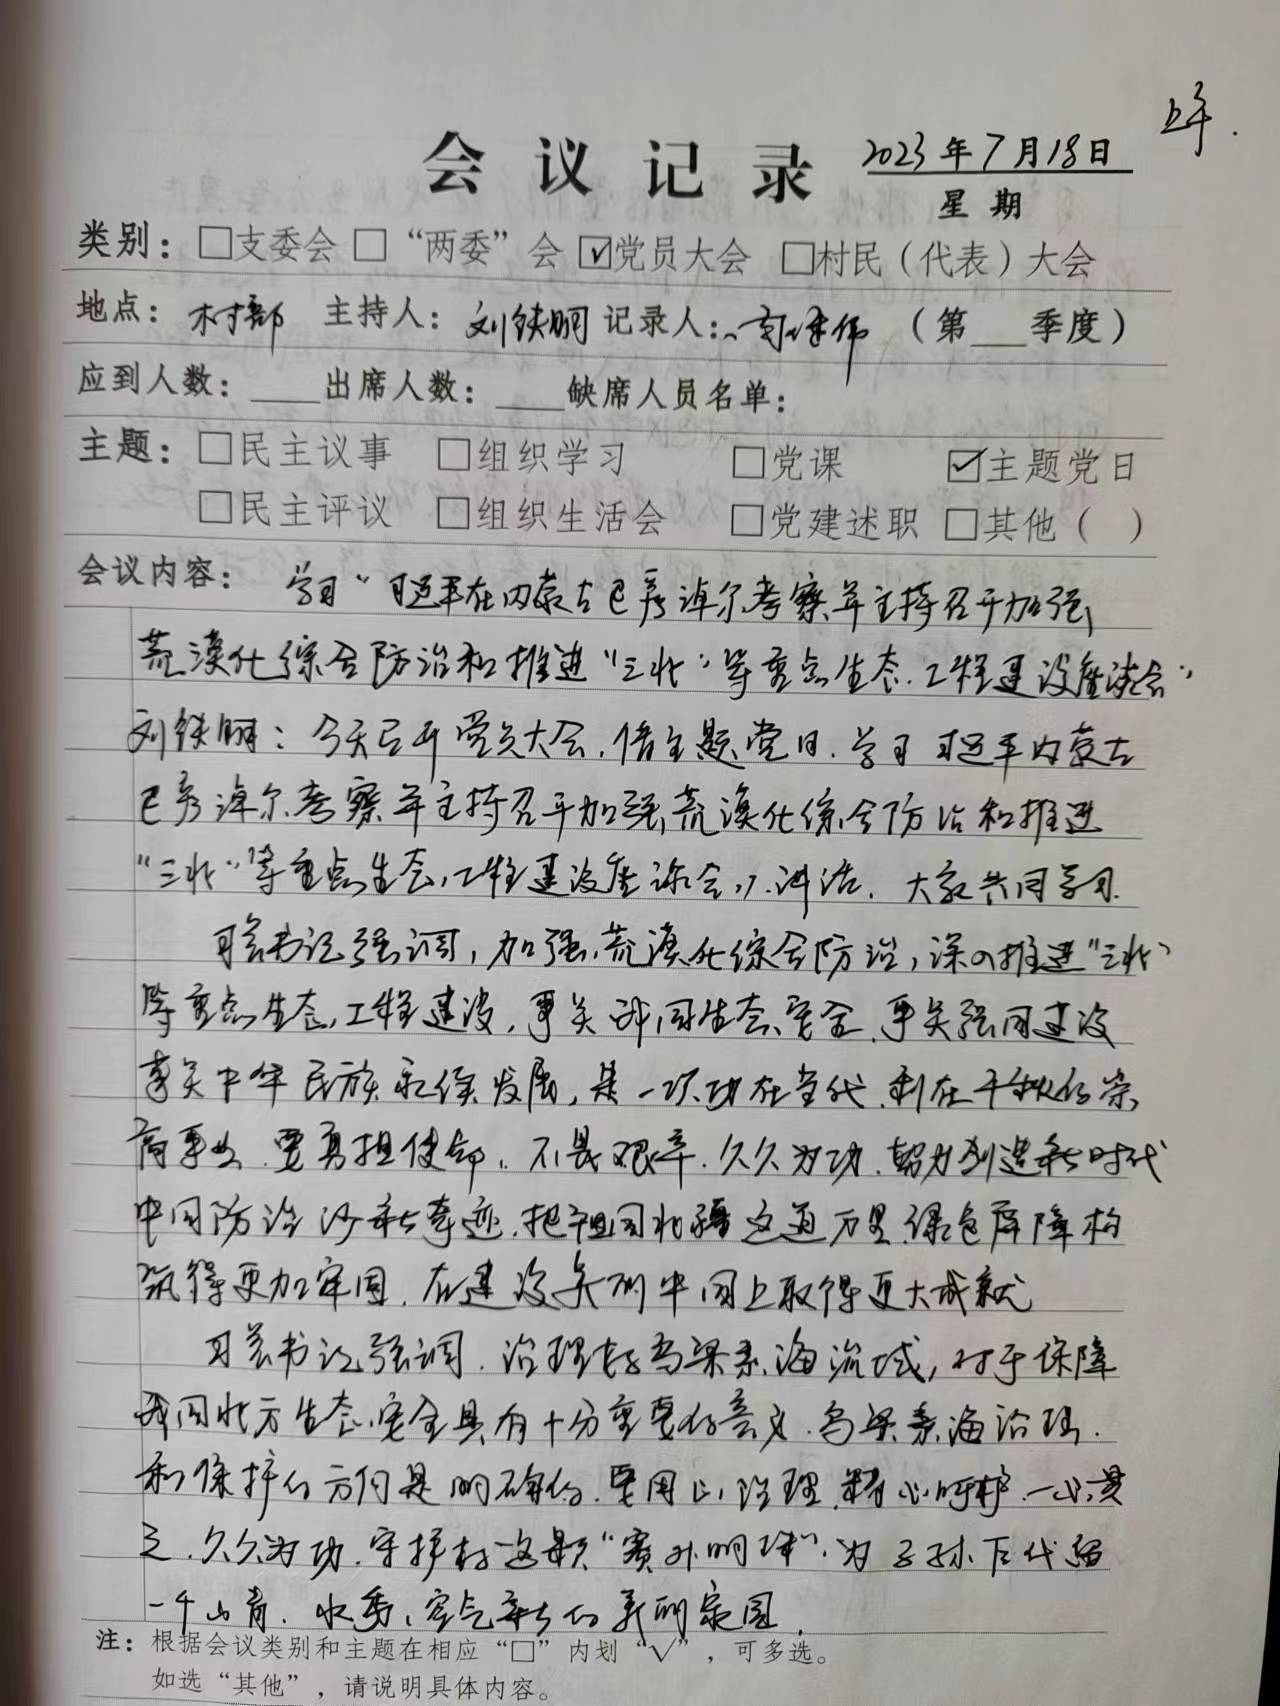 上午.
会议记录 2023年7月18日
星期
类别：□支委会 □“两委”会 ☑党员大会 □村民（代表）大会
地点：村部 主持人：刘铁明 记录人： （第___季度）
应到人数：____出席人数：____缺席人员名单：
主题：□民主议事 □组织学习 □党课 ☑主题党日
□民主评议 □组织生活会 □党建述职 □其他（ ）
会议内容： 学习“习近平在内蒙古巴彦淖尔考察并主持召开加强
荒漠化综合防治和推进“三北”等重点生态工程建设座谈会”
刘铁明：今天召开党员大会，借主题党日，学习习近平内蒙古
巴彦淖尔考察并主持召开加强荒漠化综合防治和推进
“三北”等重点生态工程建设座谈会”讲话，大家共同学习.
习总书记强调，加强荒漠化综合防治，深入推进“三北”
等重点生态工程建设，事关我国生态安全，事关强国建设
事关中华民族永续发展，是一项功在当代、利在千秋的崇
高事业，要勇担使命，不畏艰辛，久久为功，努力创造新时代
中国防治沙新奇迹，把祖国北疆这道万里绿色屏障构
筑得更加牢固，在建设美丽中国上取得更大成就
习总书记强调，治理好乌梁素海流域，对于保障
我国北方生态安全具有十分重要的意义，乌梁素海治理
和保护的方向是明确的，要用心治理、精心呵护，一以贯
之，久久为功，守护好这颗“塞外明珠”，为子孙后代留
一个山青、水秀、空气新的美丽家园.
注：根据会议类别和主题在相应“□”内划“√”，可多选。
如选“其他”，请说明具体内容。